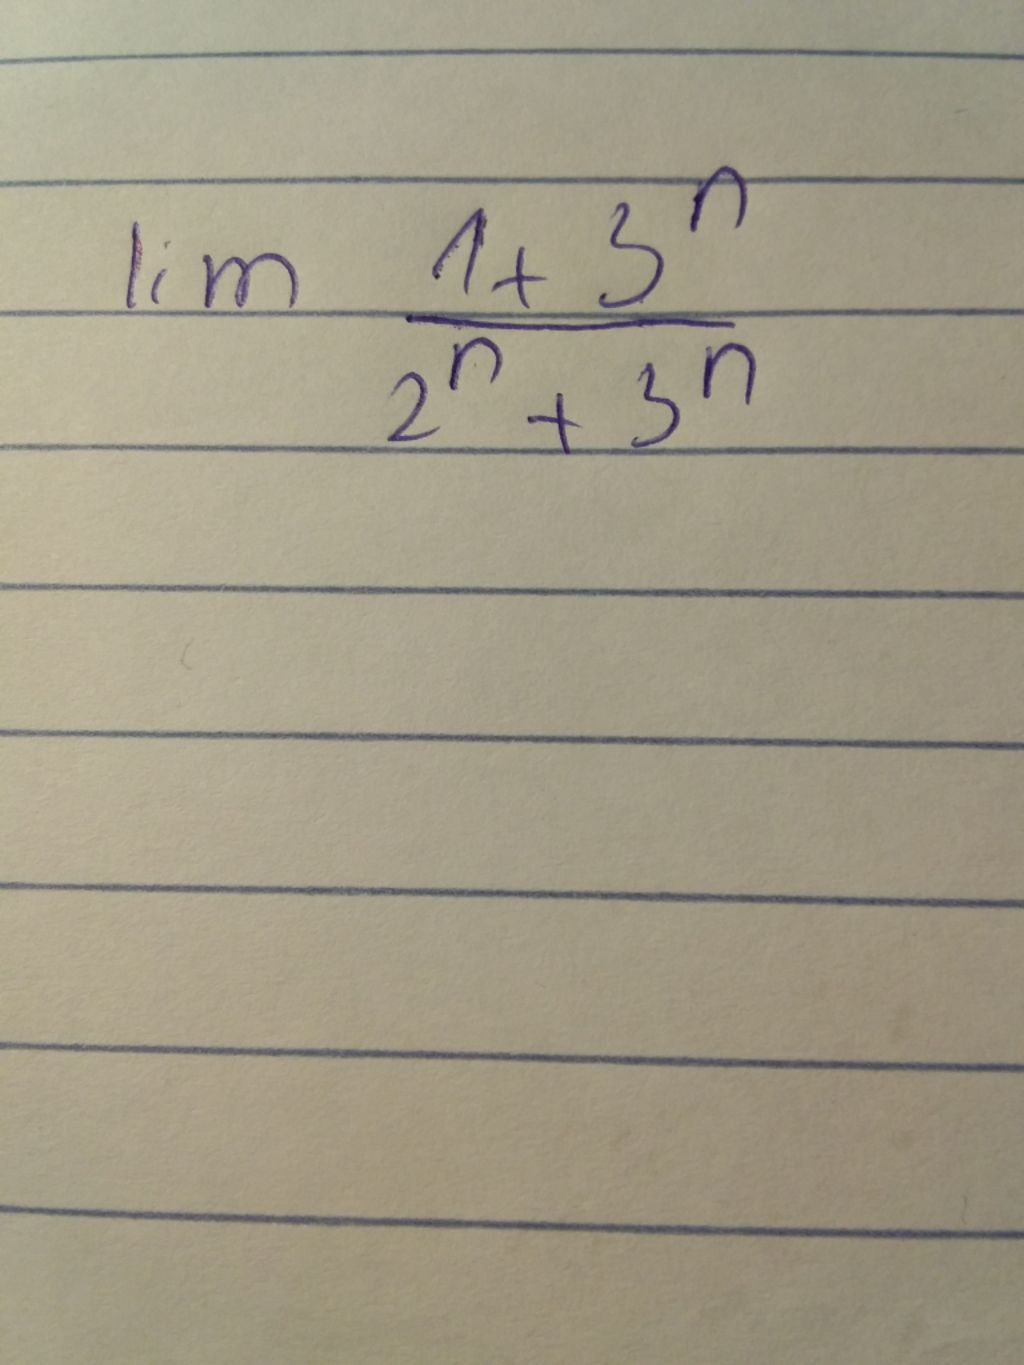 lim 1 + 3^n
2^n + 3^n